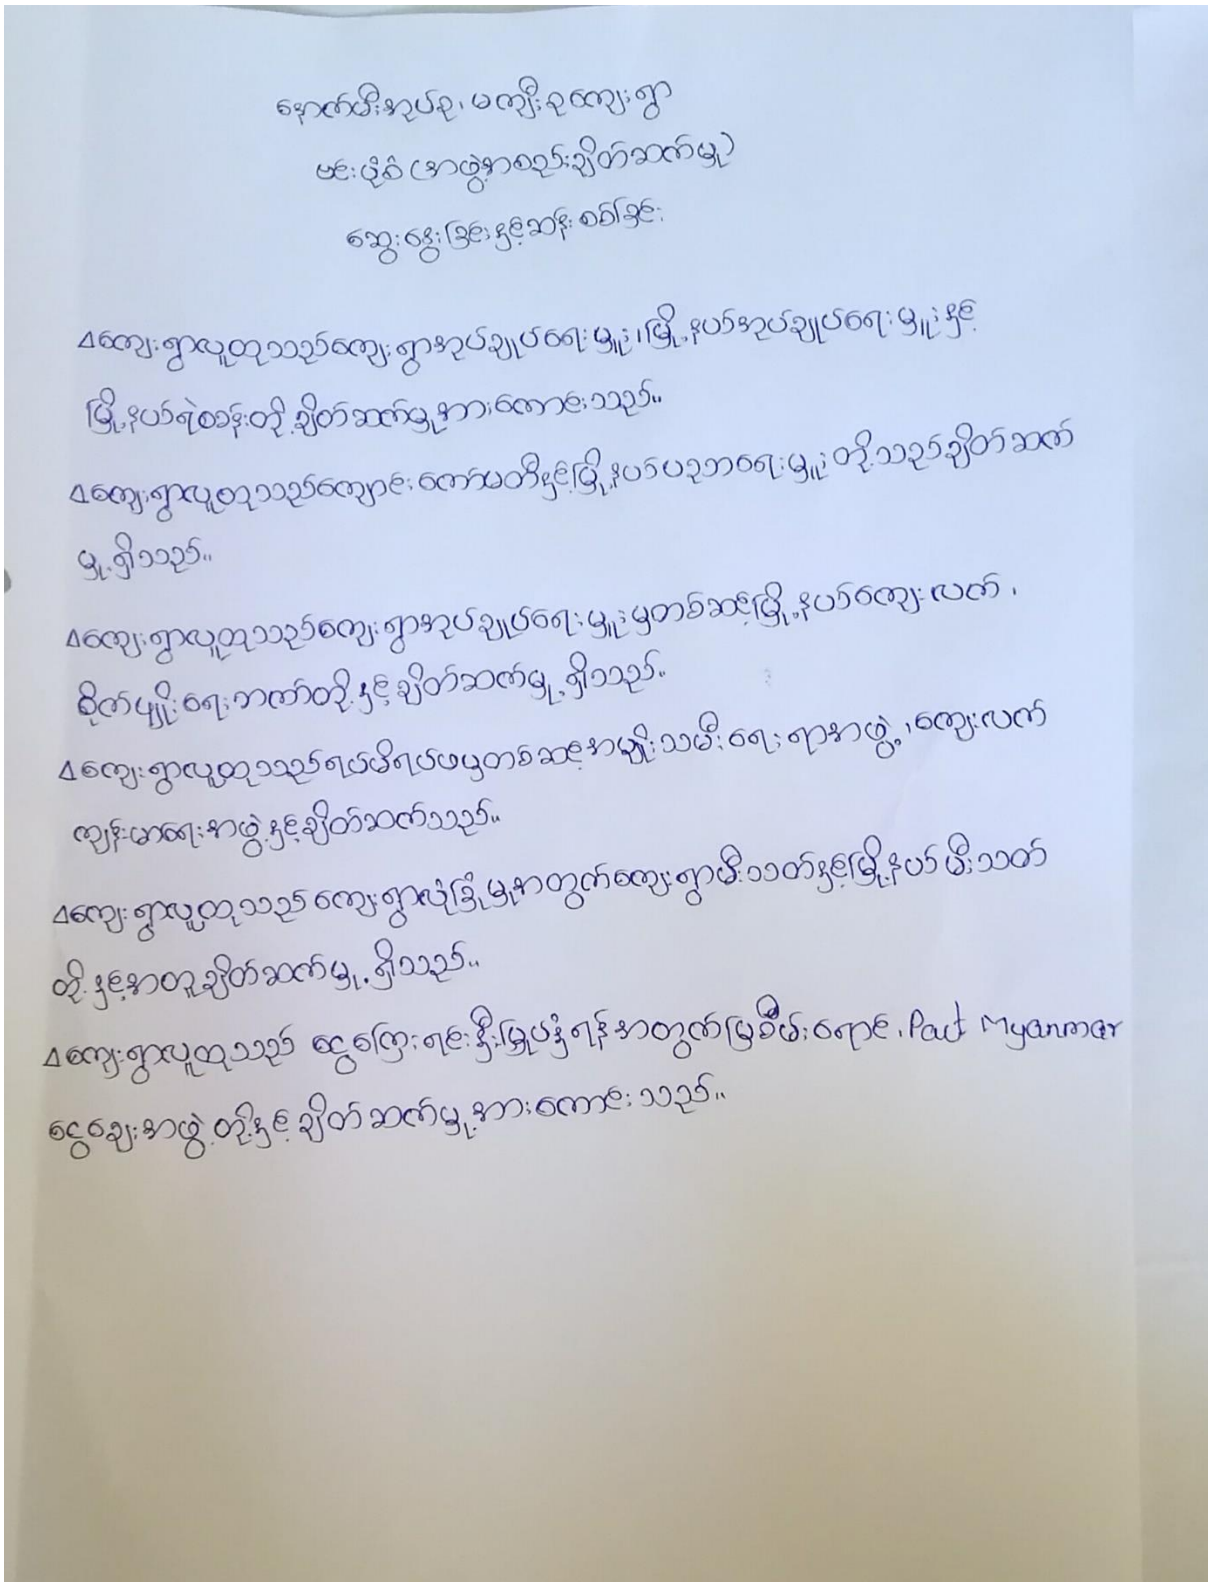 နောက်မီးအုပ်စု၊ မကျီးစုကျေးရွာ
ဗင်းပုံစံ (အဖွဲ့အစည်းချိတ်ဆက်မှု)
ဆွေးနွေးခြင်းနှင့်ဆန်းစစ်ခြင်း
△ကျေးရွာလူထုသည်ကျေးရွာအုပ်ချုပ်ရေးမှူး၊မြို့နယ်အုပ်ချုပ်ရေးမှူးနှင့်
မြို့နယ်ရဲစခန်းတို့ချိတ်ဆက်မှုအားကောင်းသည်။
△ကျေးရွာလူထုသည်ကျောင်းကော်မတီနှင့်မြို့နယ်ပညာရေးမှူးတို့သည်ချိတ်ဆက်
မှုရှိသည်။
△ကျေးရွာလူထုသည်ကျေးရွာအုပ်ချုပ်ရေးမှူးမှတစ်ဆင့်မြို့နယ်ကျေးလက်၊
စိုက်ပျိုးရေးဘဏ်တို့နှင့်ချိတ်ဆက်မှုရှိသည်။
△ကျေးရွာလူထုသည်ရပ်မိရပ်ဖမှတစ်ဆင့်အမျိုးသမီးရေးရာအဖွဲ့၊ကျေးလက်
ကျန်းမာရေးအဖွဲ့နှင့်ချိတ်ဆက်သည်။
△ကျေးရွာလူထုသည် ကျေးရွာလုံခြုံမှုအတွက်ကျေးရွာမီးသတ်နှင့်မြို့နယ်မီးသတ်
တို့နှင့်အတူချိတ်ဆက်မှုရှိသည်။
△ကျေးရွာလူထုသည် ငွေကြေးရင်းနှီးမြှုပ်နှံရန်အတွက်မြစိမ်းရောင်၊ Pact Myanmar
ငွေချေးအဖွဲ့တို့နှင့်ချိတ်ဆက်မှုအားကောင်းသည်။